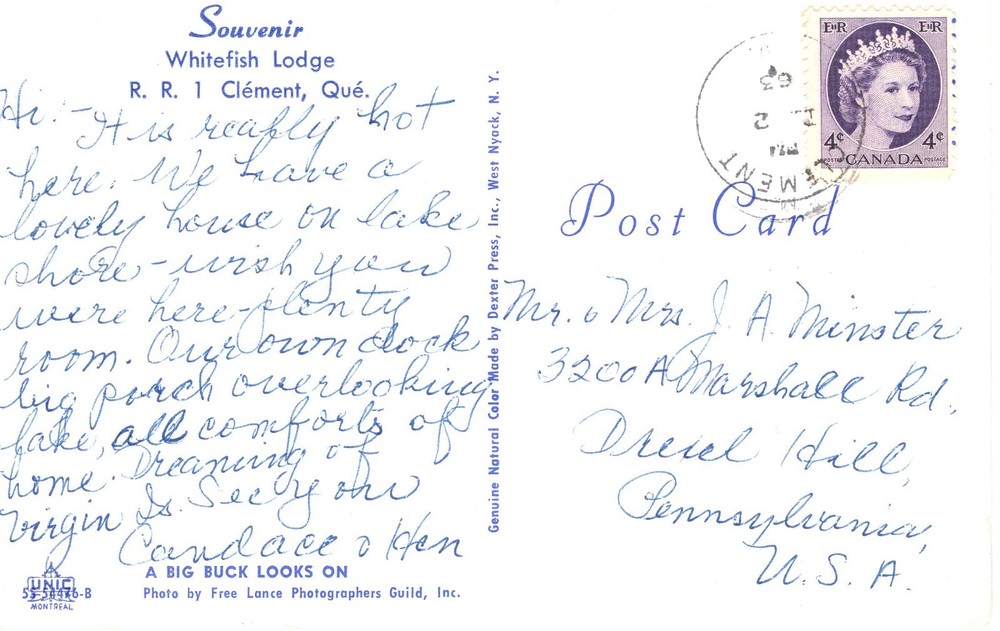 Souvenir
Whitefish Lodge
R. R. 1 Clément, Qué.
Hi:- It is really hot
here. We have a
lovely house on lake
shore - wish you
were here - plenty
room. Our own dock
big porch overlooking
lake, all comforts of
home. Dreaming of
Virgin Is. See you
Candace & Hen
A BIG BUCK LOOKS ON
Photo by Free Lance Photographers Guild, Inc.
UNIC
MONTREAL
Genuine Natural Color Made by Dexter Press, Inc., West Nyack, N. Y.
EIIR EIIR
4¢ 4¢
POSTES CANADA POSTAGE
63
2
EMENT
Post Card
Mr. & Mrs. J. A. Minster
3200A Marshall Rd.,
Drexel Hill,
Pennsylvania,
U. S. A.